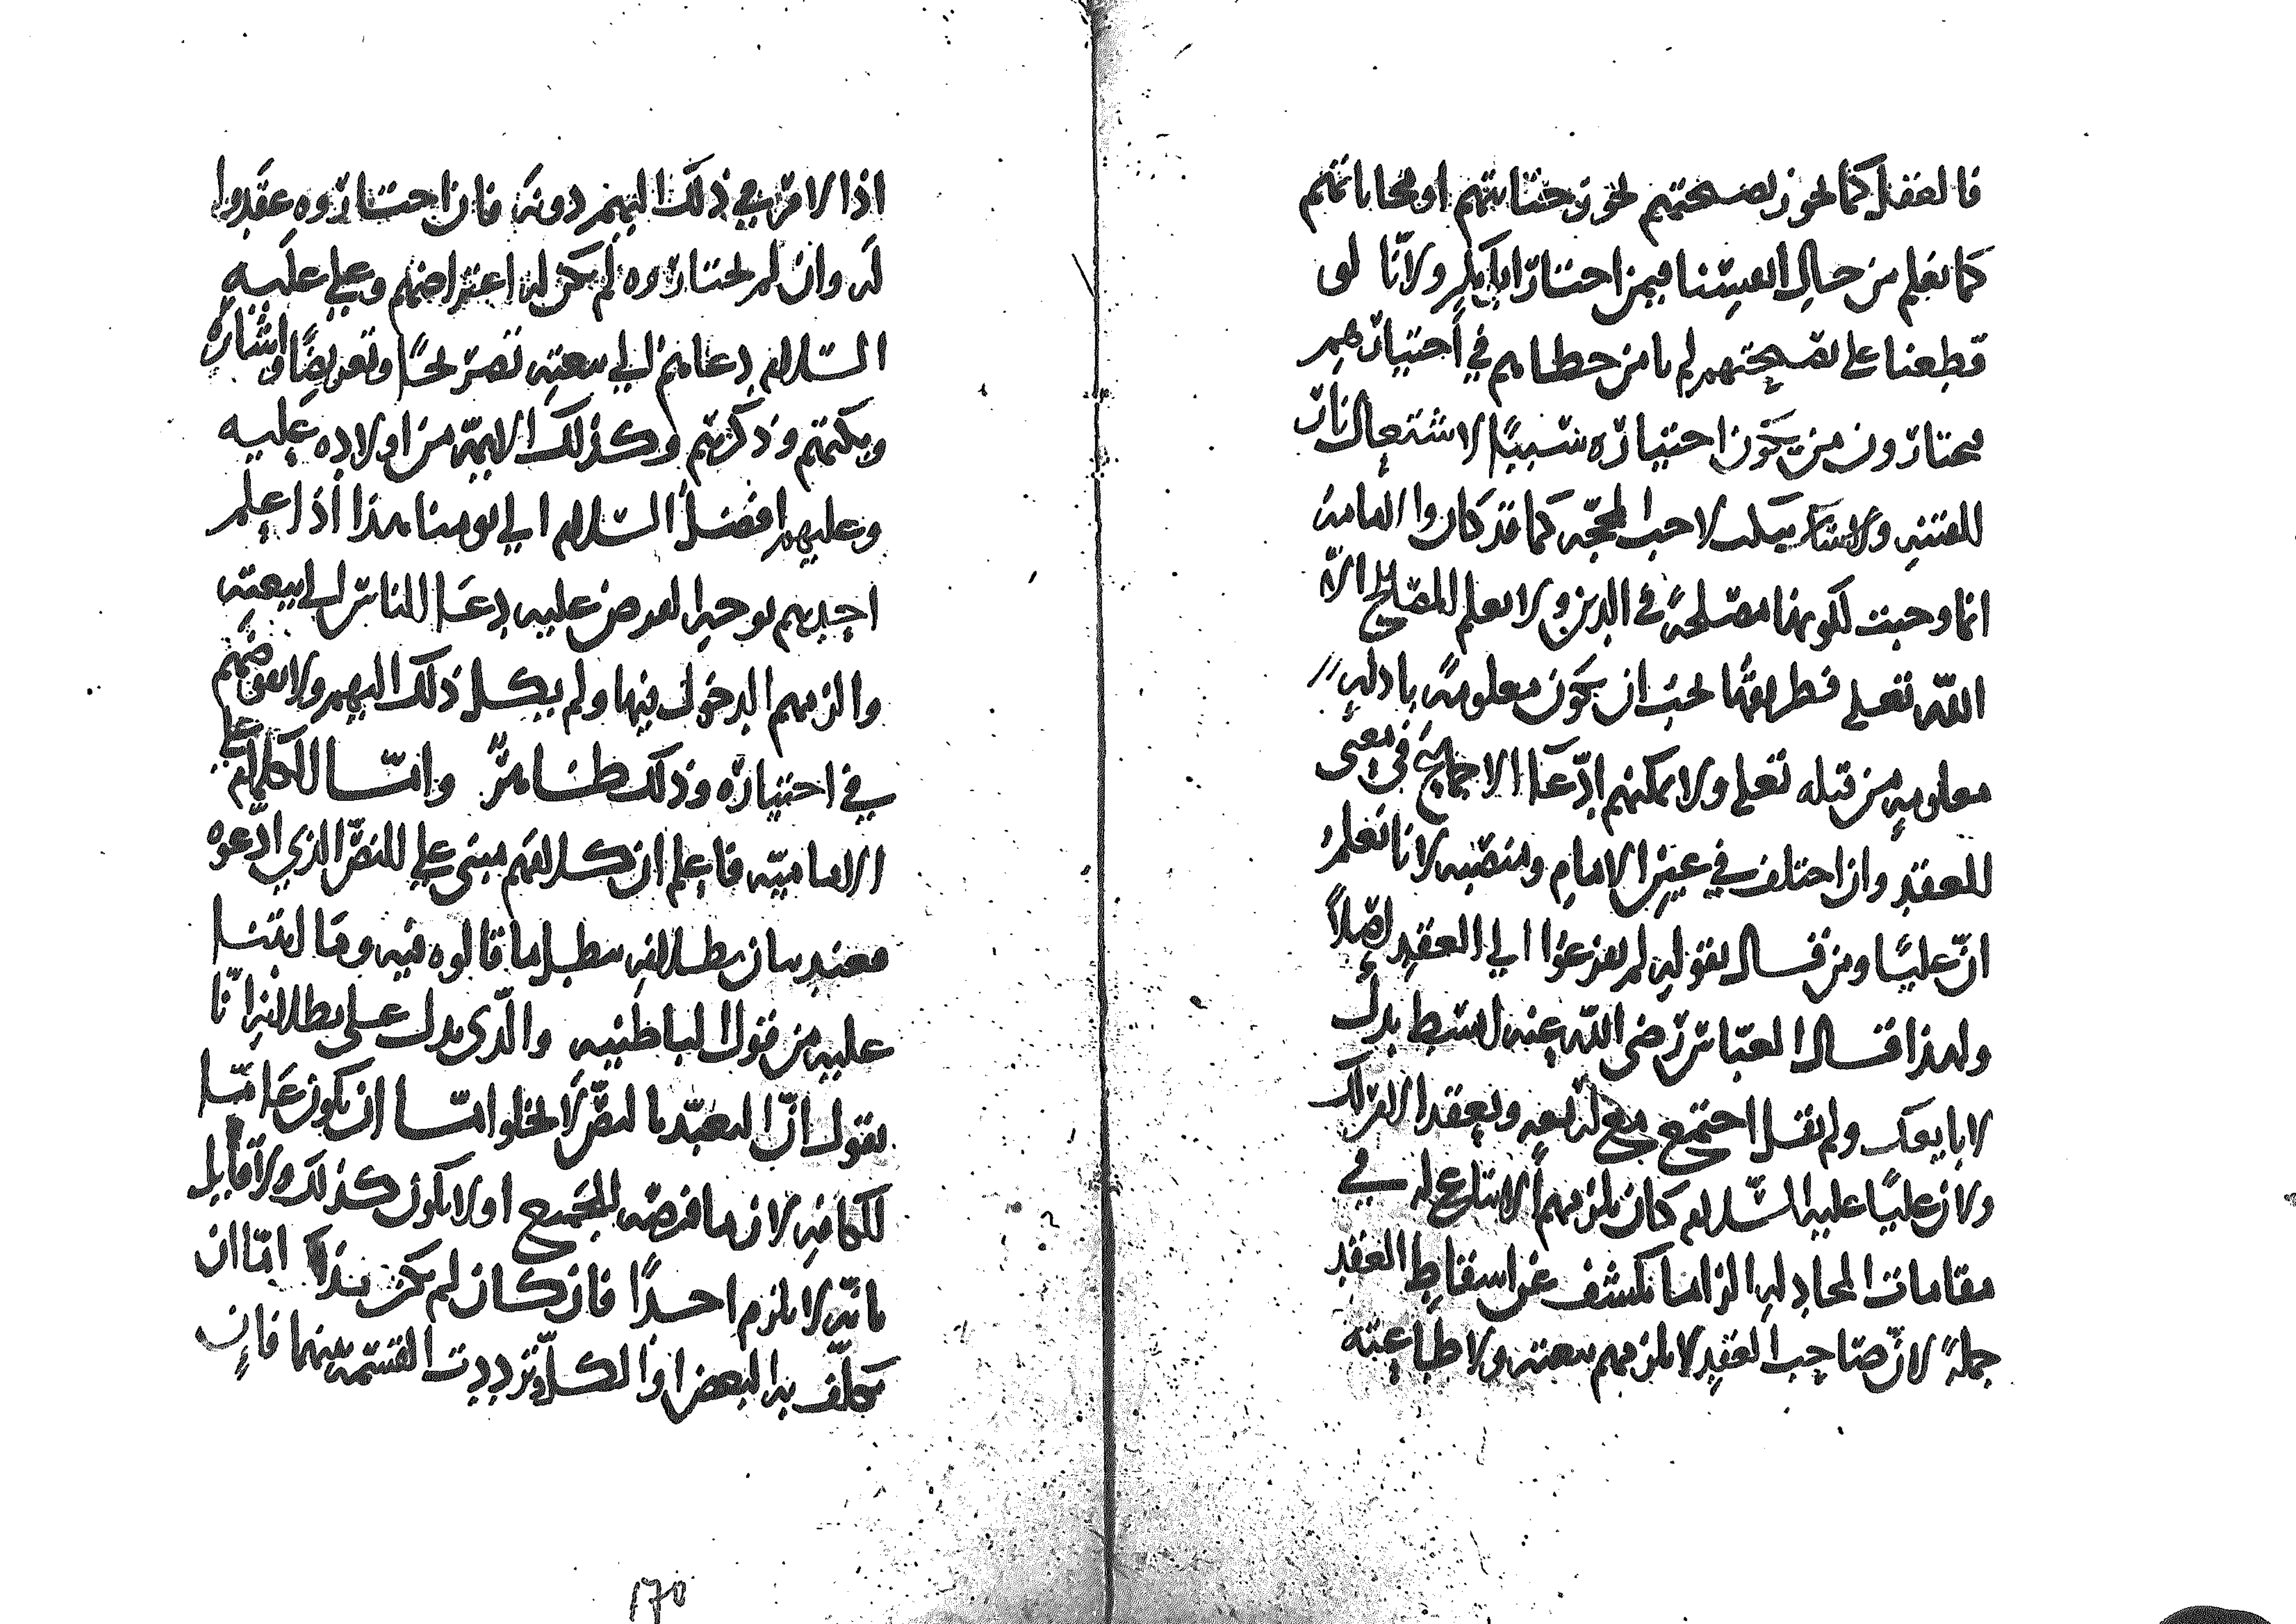 فالعقل كما يجوز نصيحتهم يجوز خيانتهم او محاباتهم
كما نعلم من حال انفسنا فيمن اختار ابا بكر ولانا لو
قطعنا على نصيحتهم لم نامن خطاهم في اختيارهم
فيختارون من يكون اختياره سببًا لاشتعال نار
للفتنه لاحب المحجه كما قد كان والامامه
انما وجبت لكونها مصلحةً في الدين ولا يعلم المصالح الا
الله تعلى فطريقها يجب ان يكون معلومة بادله
معلومه من قبله تعلى ولا يمكنهم ادّعا الاجماع في معنى
للعقد وان اختلف في عين الامام ومنصبه لانا نعلم
انّ عليًا ومن قال بقوله لم يفزعوا الى العقد اصلاً
ولهذا قال العبّاس رضي الله عنه ابسط يدك
لابايعك ولم يقل اجتمع مع اربعه ويعقد الامر لك
ولان عليًا عليه السّلام كان يلزمهم الاتباع له في
مقامات المجادله الزاما يكشف عن اسقاط العقد
جملةً لانّ صاحب العقد لا يلزمهم بيعته ولا طاعته
اذا الامر في ذلك اليهم دونه فان اختاروه عقدوا
له وان لم يختاروه لم يكن له اعتراضهم وعلي عليه
السّلام دعاهم الى بيعته تصريحًا وتعريضًا واشاره
وبكتهم وذكرهم وكذلك الايمّه من اولاده عليه
وعليهم افضل السّلام الى يومنا هذا اذا علم
احدهم توجه الفرض عليه دعا الناس الى بيعته
والزمهم الدخول فيها ولم يكل ذلك اليهم ولا فوضهم
في اختياره وذلك ظاهرٌ وامّا الكلام على
الاماميّه فاعلم ان كلامهم مبنى على النصّ الذي ادّعوه
فعند بيان بطلانه يبطل ما قالوه فيه وما
عليه من قول الباطنيه والّذى يدل على بطلانه انّا
نقول انّ التعبّد بالنصّ لا يخلوا امّا ان يكون عامّا
للكافه لان ما فرضه للجميع او لا يكون كذلك ولا قايل
بانّه لا يلزم احدًا فان كان لم يكن بدًا امّا ان
يكلّف به البعض او الكلّ وترددت القسمة بينهما فان
١٧٥